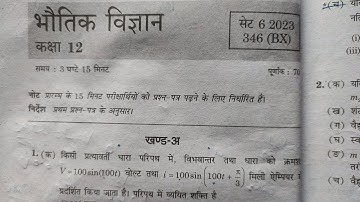 भौतिक विज्ञान
कक्षा 12
सेट 6 2023
346 (BX)
समय : 3 घण्टे 15 मिनट
पूर्णांक : 70
नोट प्रारम्भ के 15 मिनट परीक्षार्थियों को प्रश्न-पत्र पढ़ने के लिए निर्धारित हैं।
निर्देश प्रथम प्रश्न-पत्र के अनुसार।
खण्ड-अ
1. (क) किसी प्रत्यावर्ती धारा परिपथ में, विभवान्तर तथा धारा को क्रमशः
V = 100sin(100t) वोल्ट तथा i = 100sin(100t + π/3) मिली ऐम्पियर
प्रदर्शित किया जाता है। परिपथ में व्ययित शक्ति है
(i)
(ii)
2. (क)
(ख)
(ग)
(घ)
(ङ)
(च)